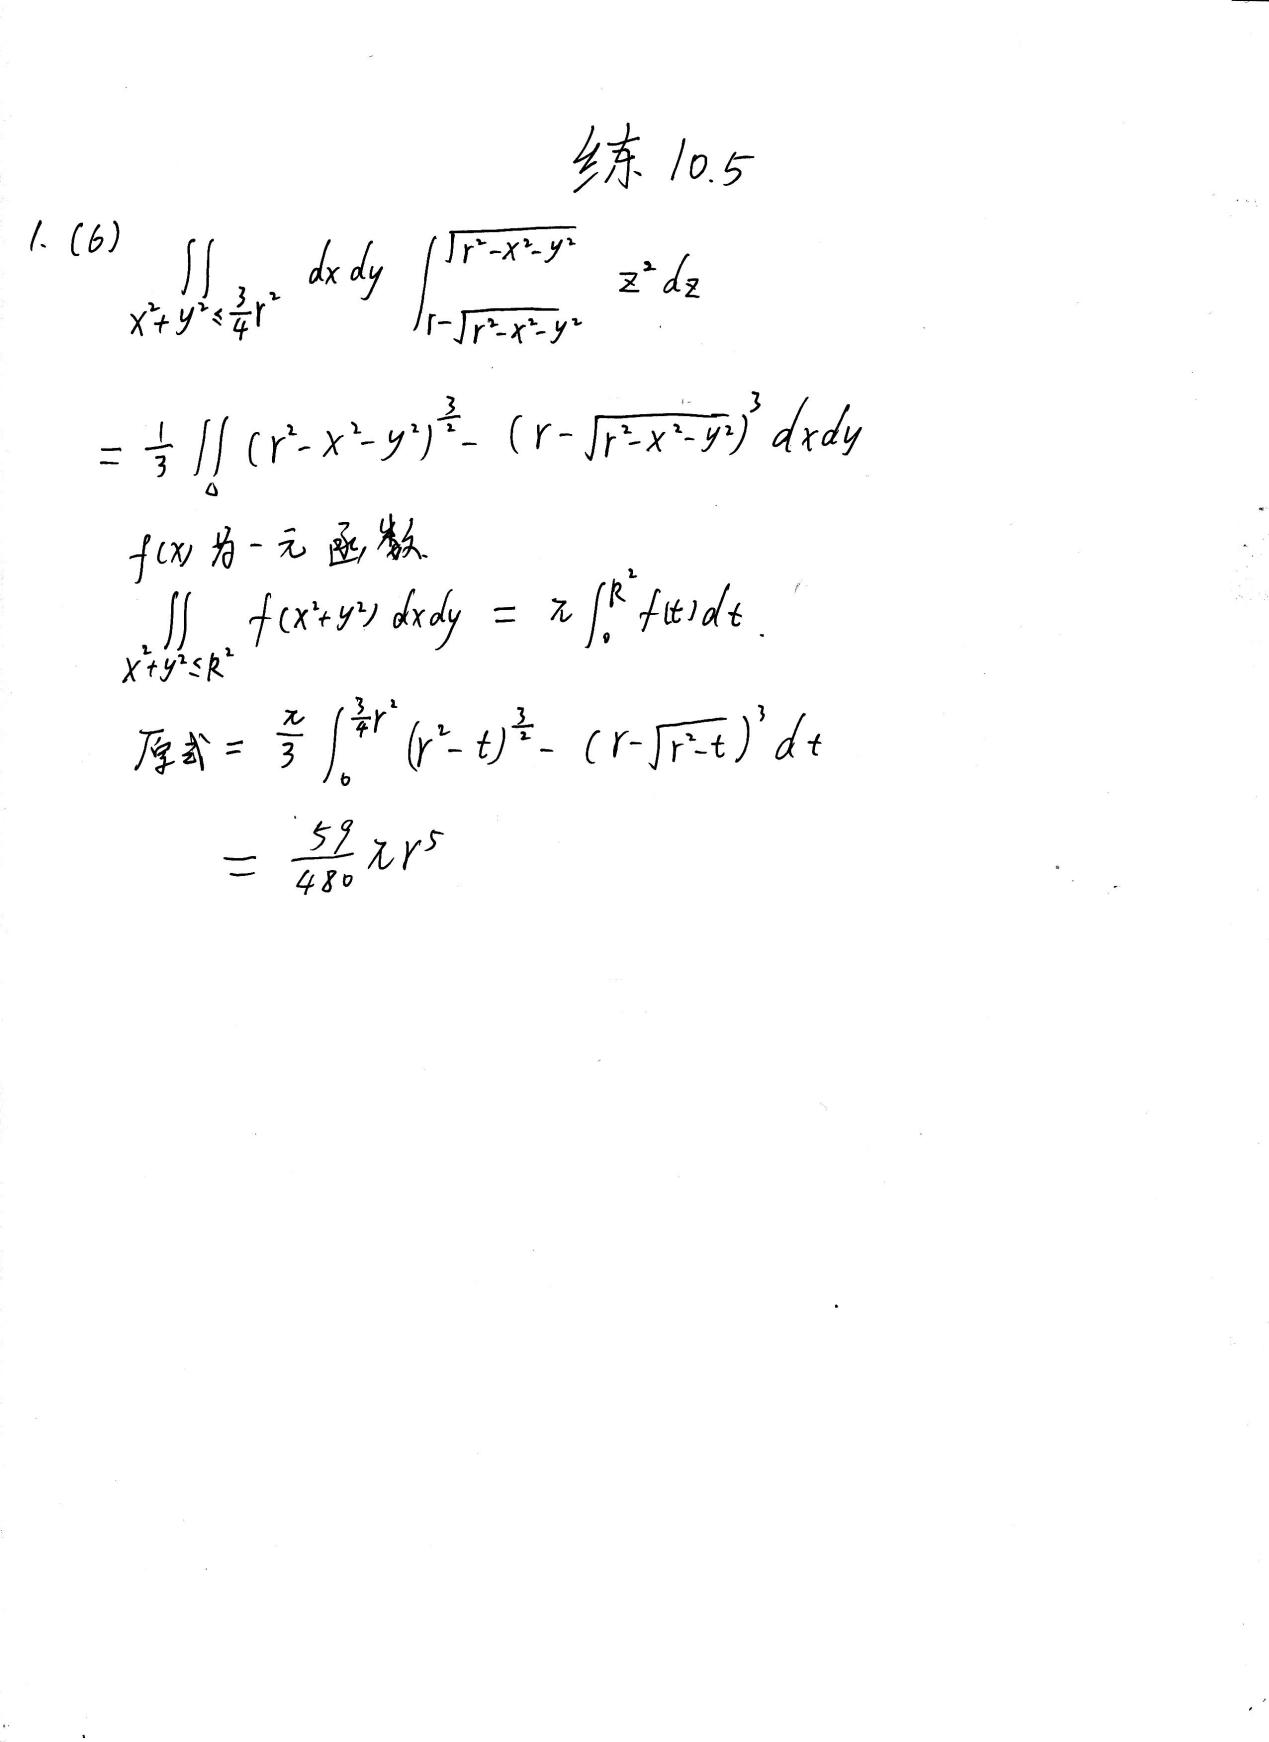 练 10.5
1. (6) ∬_{x²+y²≤\frac{3}{4}r²} dx dy ∫_{r-\sqrt{r²-x²-y²}}^{\sqrt{r²-x²-y²}} z² dz
= \frac{1}{3} ∬_Δ (r²-x²-y²)^{\frac{3}{2}} - (r-\sqrt{r²-x²-y²})³ dxdy
f(x) 为一元函数.
∬_{x²+y²≤R²} f(x²+y²) dxdy = π ∫_0^{R²} f(t) dt.
原式 = \frac{π}{3} ∫_0^{\frac{3}{4}r²} (r²-t)^{\frac{3}{2}} - (r-\sqrt{r²-t})³ dt
= \frac{59}{480} πr⁵